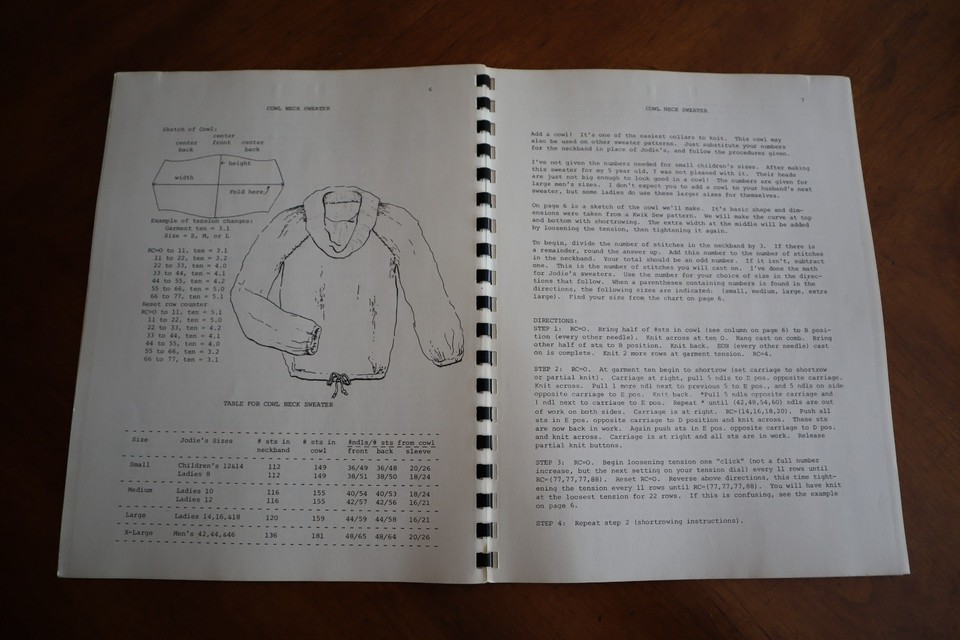 6
COWL NECK SWEATER
Sketch of Cowl:
center back
center front
center back
height
width
Fold here
Example of tension changes:
Garment ten = 3.1
Size = S, M, or L
RC=0 to 11, ten = 3.1
11 to 22, ten = 3.2
22 to 33, ten = 4.0
33 to 44, ten = 4.1
44 to 55, ten = 4.2
55 to 66, ten = 5.0
66 to 77, ten = 5.1
Reset row counter
RC=0 to 11, ten = 5.1
11 to 22, ten = 5.0
22 to 33, ten = 4.2
33 to 44, ten = 4.1
44 to 55, ten = 4.0
55 to 66, ten = 3.2
66 to 77, ten = 3.1
TABLE FOR COWL NECK SWEATER
Size Jodie's Sizes # sts in neckband # sts in cowl #ndls/# sts from cowl front back sleeve
Small Children's 12&14 112 149 36/49 36/48 20/26
Ladies 8 112 149 38/51 38/50 18/24
Medium Ladies 10 116 155 40/54 40/53 18/24
Ladies 12 116 155 42/57 42/56 16/21
Large Ladies 14,16,&18 120 159 44/59 44/58 16/21
X-Large Men's 42,44,&46 136 181 48/65 48/64 20/26
7
COWL NECK SWEATER
Add a cowl! It's one of the easiest collars to knit. This cowl may
also be used on other sweater patterns. Just substitute your numbers
for the neckband in place of Jodie's, and follow the procedures given.
I've not given the numbers needed for small children's sizes. After making
this sweater for my 5 year old, I was not pleased with it. Their heads
are just not big enough to look good in a cowl! The numbers are given for
large men's sizes. I don't expect you to add a cowl to your husband's next
sweater, but some ladies do use these larger sizes for themselves.
On page 6 is a sketch of the cowl we'll make. It's basic shape and dim-
ensions were taken from a Kwik Sew pattern. We will make the curve at top
and bottom with shortrowing. The extra width at the middle will be added
by loosening the tension, then tightening it again.
To begin, divide the number of stitches in the neckband by 3. If there is
a remainder, round the answer up. Add this number to the number of stitches
in the neckband. Your total should be an odd number. If it isn't, subtract
one. This is the number of stitches you will cast on. I've done the math
for Jodie's sweaters. Use the number for your choice of size in the direc-
tions that follow. When a parentheses containing numbers is found in the
directions, the following sizes are indicated: (small, medium, large, extra
large). Find your size from the chart on page 6.
DIRECTIONS:
STEP 1: RC=0. Bring half of #sts in cowl (see column on page 6) to B posi-
tion (every other needle). Knit across at ten 0. Hang cast on comb. Bring
other half of sts to B position. Knit back. EON (every other needle) cast
on is complete. Knit 2 more rows at garment tension. RC=4.
STEP 2: RC=0. At garment ten begin to shortrow (set carriage to shortrow
or partial knit). Carriage at right, pull 5 ndls to E pos. opposite carriage.
Knit across. Pull 1 more ndl next to previous 5 to E pos., and 5 ndls on side
opposite carriage to E pos. Knit back. *Pull 5 ndls opposite carriage and
1 ndl next to carriage to E pos. Repeat * until (42,49,54,60) ndls are out
of work on both sides. Carriage is at right. RC=(14,16,18,20). Push all
sts in E pos. opposite carriage to D position and knit across. These sts
are now back in work. Again push sts in E pos. opposite carriage to D pos.
and knit across. Carriage is at right and all sts are in work. Release
partial knit buttons.
STEP 3: RC=0. Begin loosening tension one "click" (not a full number
increase, but the next setting on your tension dial) every 11 rows until
RC=(77,77,77,88). Reset RC=0. Reverse above directions, this time tight-
ening the tension every 11 rows until RC=(77,77,77,88). You will have knit
at the loosest tension for 22 rows. If this is confusing, see the example
on page 6.
STEP 4: Repeat step 2 (shortrowing instructions).